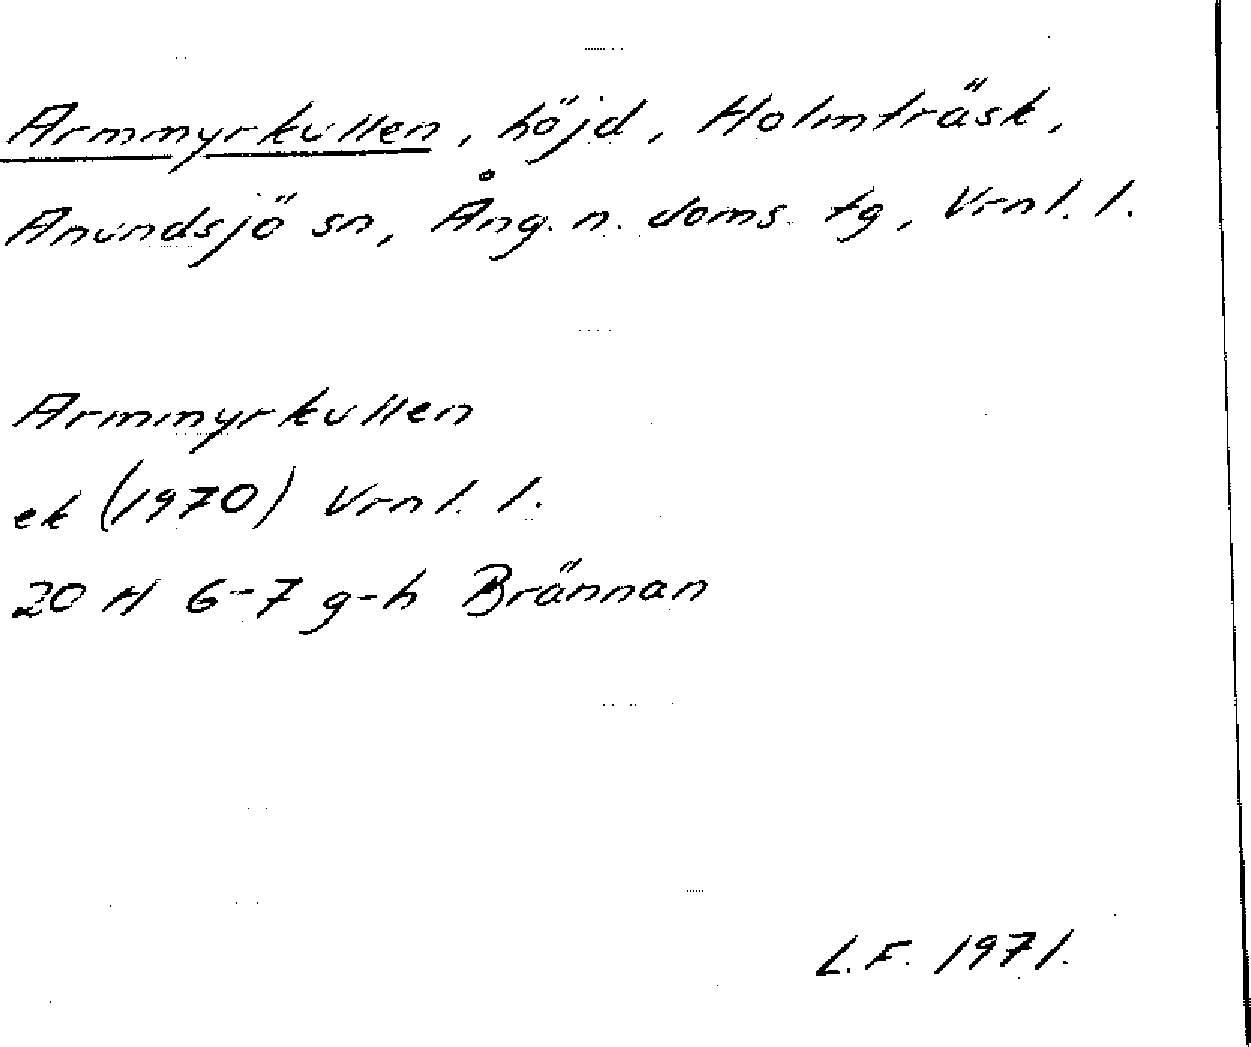 Armmyrkullen, höjd, Holmträsk,
Anundsjö sn, Ång. n. doms. tg, Vrnl. l.
Armmyrkullen
ek (1970) Vrnl. l.
20 H 6-7 g-h Brännan
L.F. 1971.